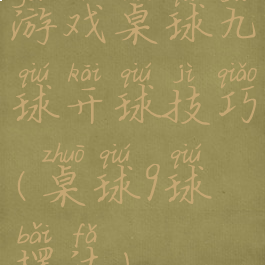 游戏桌球九
qiú kāi qiú jì qiǎo
球开球技巧
zhuō qiú qiú
(桌球9球
bǎi fǎ
摆法)